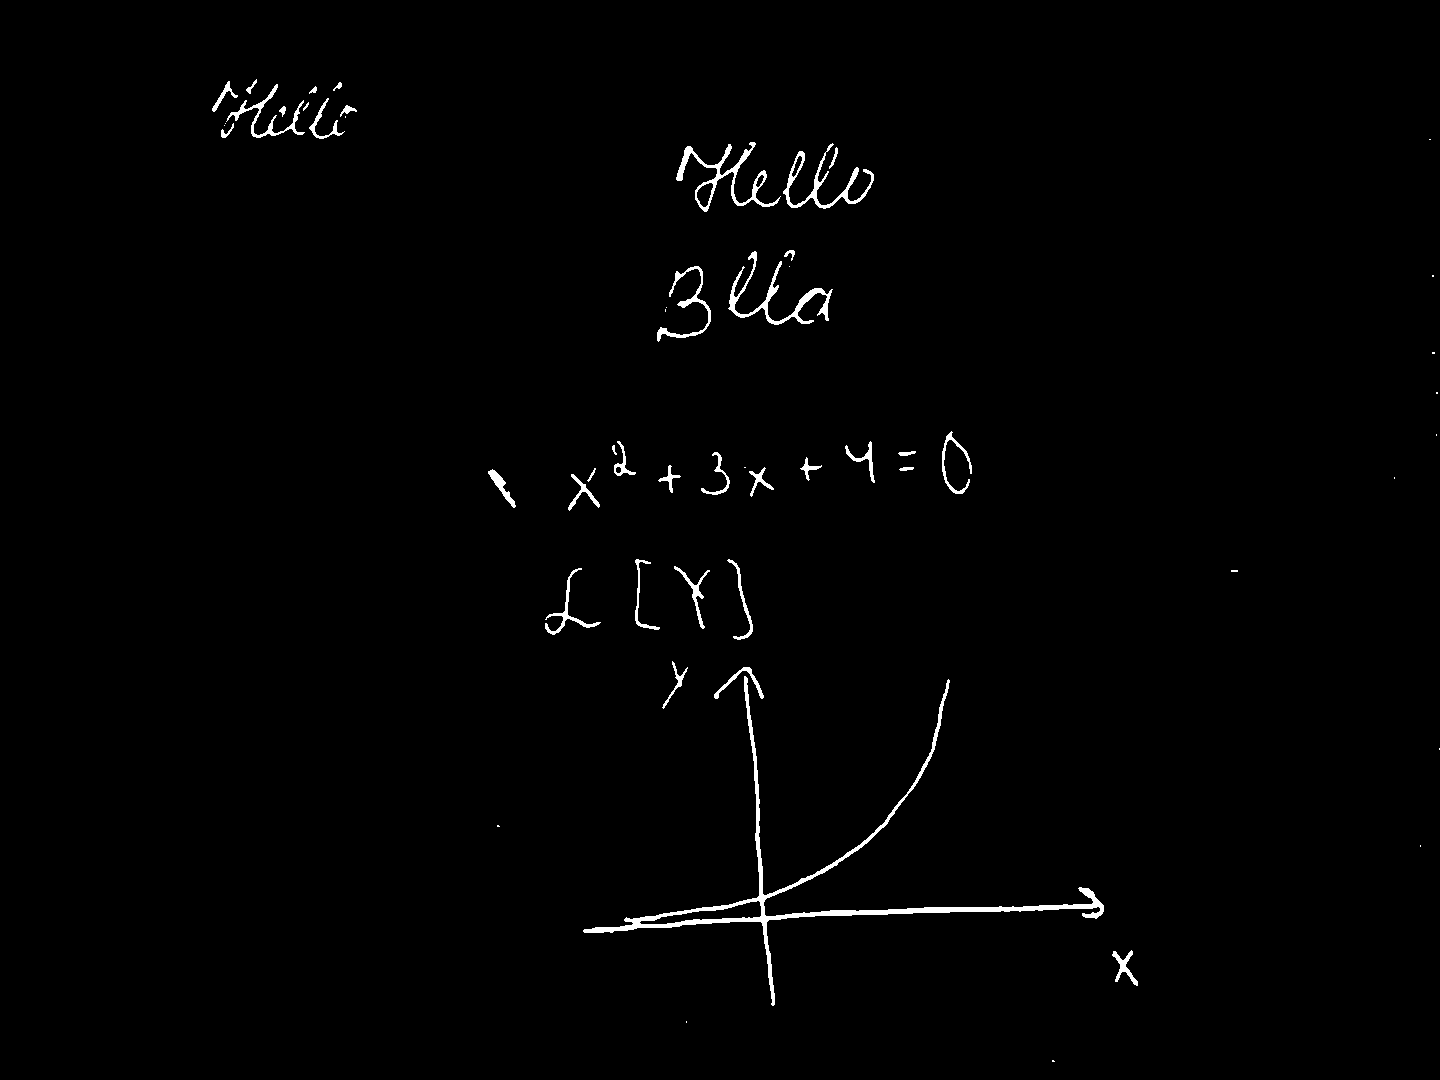 Hello
Hello
Blla
x² + 3x + 4 = 0
ℒ [Y]
y
x